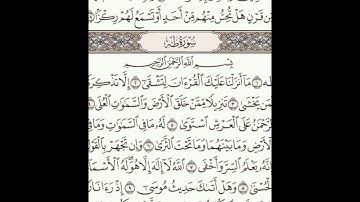 مِّن قَرْنٍ هَلْ تُحِسُّ مِنْهُم مِّنْ أَحَدٍ أَوْ تَسْمَعُ لَهُمْ رِكْزًا ٩٨
سُورَةُ طه
بِسْمِ اللَّهِ الرَّحْمَٰنِ الرَّحِيمِ
طه ١ مَا أَنزَلْنَا عَلَيْكَ الْقُرْءَانَ لِتَشْقَىٰ ٢ إِلَّا تَذْكِرَةً
لِّمَن يَخْشَىٰ ٣ تَنزِيلًا مِّمَّنْ خَلَقَ الْأَرْضَ وَالسَّمَٰوَٰتِ الْعُلَى ٤
الرَّحْمَٰنُ عَلَى الْعَرْشِ اسْتَوَىٰ ٥ لَهُ مَا فِي السَّمَٰوَٰتِ وَمَا فِي
الْأَرْضِ وَمَا بَيْنَهُمَا وَمَا تَحْتَ الثَّرَىٰ ٦ وَإِن تَجْهَرْ بِالْقَوْلِ
فَإِنَّهُ يَعْلَمُ السِّرَّ وَأَخْفَى ٧ اللَّهُ لَا إِلَٰهَ إِلَّا هُوَ لَهُ الْأَسْمَاءُ
الْحُسْنَىٰ ٨ وَهَلْ أَتَىٰكَ حَدِيثُ مُوسَىٰ ٩ إِذْ رَءَا نَارًا